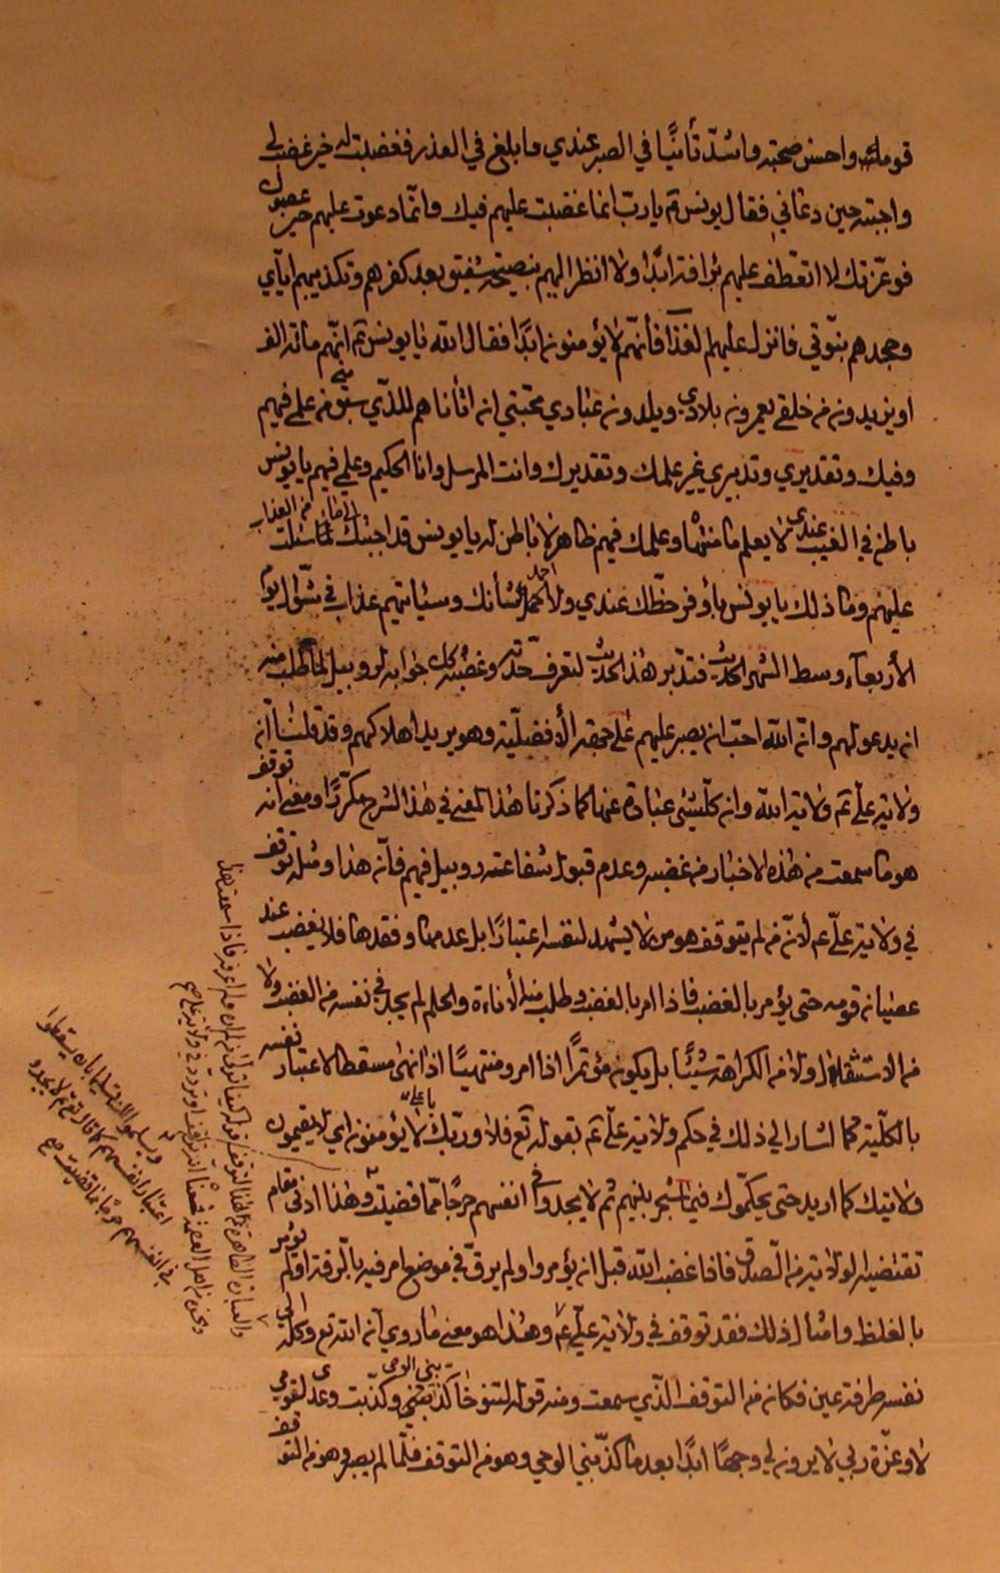 قومك واحسن صحبة واشدّ تأنيًا في الصبر عندي وابلغ في العذر فغضبت له حين غضب لي
واجبته حين دعاني فقال يونس ع يا ربّ انما غضبت عليهم فيك وانّما دعوت عليهم حين عصوك
فوعزّتك لا اتعطّف عليهم برافة ابدًا ولا انظر اليهم بنصيحة شفيق بعد كفرهم وتكذيبهم اياي
وجحدهم بنوّتي فانزل عليهم لعذابك فأنّهم لا يؤمنون ابدًا فقال الله يا يونس ع انّهم مائة الف
او يزيدون من خلقي يعمرون بلادي ويلدون عبادي محبتي ان اتأناهم للذي سبق من علمي فيهم
وفيك وتقديري وتدبيري غير علمك وتقديرك وانت المرسل وانا الحكيم وعلمي فيهم يا يونس
باطن في الغيب عندي لا يعلم ما منتهاه وعلمك فيهم ظاهر لا باطن له يا يونس قد اجبتك لما سئلت من العذاب
عليهم وما ذلك يا يونس باوفر حظّك عندي ولا احمد لشأنك وسيأتيهم عذاب في شوّال يوم
الأربعاء وسط الشهر الحديث فتدبّر هذا الحديث لتعرف حدّته وغضبه كل جوابه لروبيل لما طلب منه
ان يدعو لهم وان الله احبّ ان يصبر عليهم على جهة الأفضليّة وهو يريد اهلاكهم وقد قلنا انّ
ولاية عليّ ع ولاية الله وان كلّ شيئ عبادة عنها كما ذكرنا هذا المعنى في هذا الشرح مكرّرًا ومعنى انه توقف
هو ما سمعت من هذه الاخبار من غضبه وعدم قبول شفاعة روبيل فيهم فأنّ هذا ومثله توقف
في ولاية عليّ ع لأنّ من لم يتوقف هو من لا يشهد لنفسه اعتبارًا بل عدمها وفقدها فلا يغضب عند
عصيان قومه حتى يؤمر بالغضب فاذا امر بالغضب وطلب منه الأناءة والحلم لم يجد في نفسه من الغضب ولا
من الاستثقال ولا من الكراهة شيئًا بل يكون مؤتمرًا اذا امر ومنتهيًا اذا انتهى مسقطا لاعتبار نفسه
بالكلّية كما اشار الى ذلك في حكم ولاية عليّ ع بقوله تع فلا وربّك يا علي لا يؤمنون اي لا يقيمون
ولايتك كما اريد حتى يحكّموك فيما شجر بينهم ثم لا يجدوا في انفسهم حرجًا ممّا قضيت وهذا ادنى مقام
تقتضيه الولاية من الصدق فاذا غضب الله قبل ان يؤمر او لم يرقّ في موضع امر فيه بالرقة او لم يؤمر
بالغلظ وامثال ذلك فقد توقف في ولاية عليّ ع وهذا هو معنى ما روي أنه الله تع وكله الى
نفسه طرفة عين فكان من التوقف الذي سمعت ومنه قوله لتنوخا كذّبني الوحي وكذّبت وعدي لقومي
لا وعزّة ربي لا يرون لي وجهًا ابدًا بعد ما كذّبني الوحي وهو من التوقف فلمّا لم يصبر وهو من التوقف
ويسلموا تسليما بان يسقطوا
اعتبار انفسهم كما قال تع ثم لا يجدوا
في انفسهم حرجا مما قضيت صح